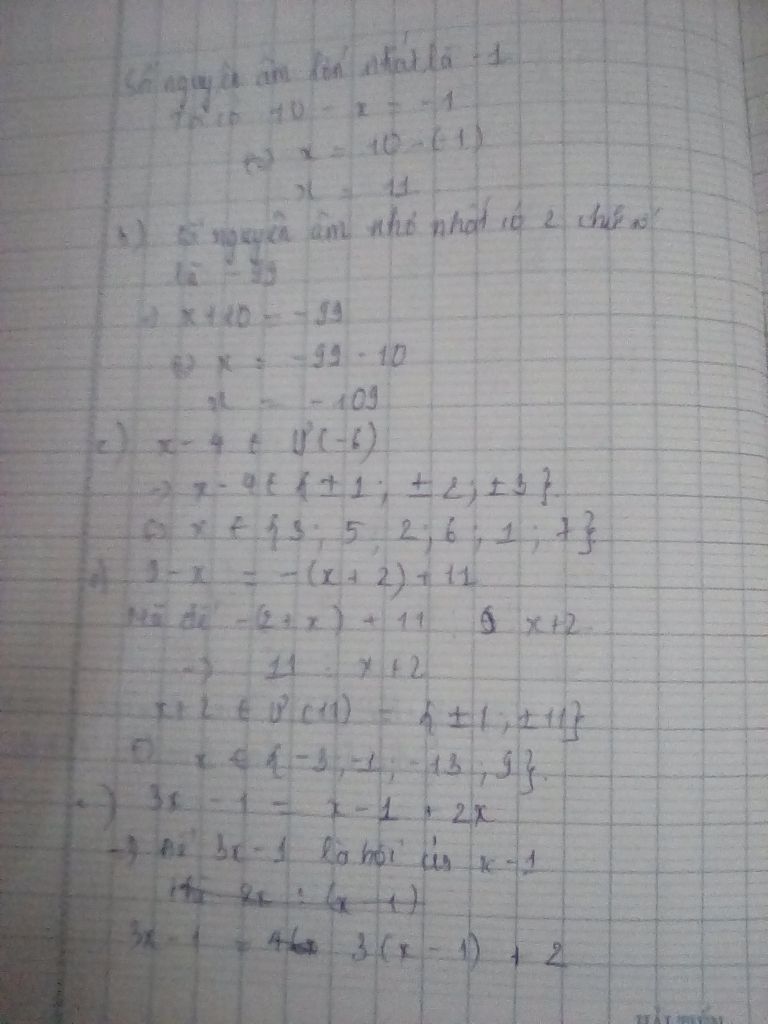 Số nguyên âm lớn nhất là -1
Ta có 10 - x = -1
<=> x = 10 - (-1)
x = 11
b) Số nguyên âm nhỏ nhất có 2 chữ số
là -99
=> x + 10 = -99
<=> x = -99 - 10
x = -109
c) x - 4 ∈ Ư(-6)
=> x - 4 ∈ { ±1 ; ±2 ; ±3 }
<=> x ∈ { 3 ; 5 ; 2 ; 6 ; 1 ; 7 }
d) 9 - x = -(x + 2) + 11
để -(2 + x) + 11 x + 2
=> 11 x + 2
x + 2 ∈ Ư(11) = { ±1 ; ±11 }
x ∈ { -3 ; -1 ; -13 ; 9 }.
3x - 1 = x - 1 + 2x
-> để 3x - 1 là bội của x - 1
thì 2x ⋮ (x - 1)
3x - 1 = 3(x - 1) + 2